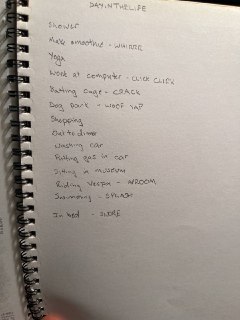 DAY IN THE LIFE
Shower
Make smoothie - WHIRRR
Yoga
Work at computer - CLICK CLICK
Batting cage - CRACK
Dog park - WOOF YAP
Shopping
Out to dinner
Washing car
Putting gas in car
Sitting in museum
Riding Vespa - VROOM
Swimming - SPLASH
In bed - SNORE